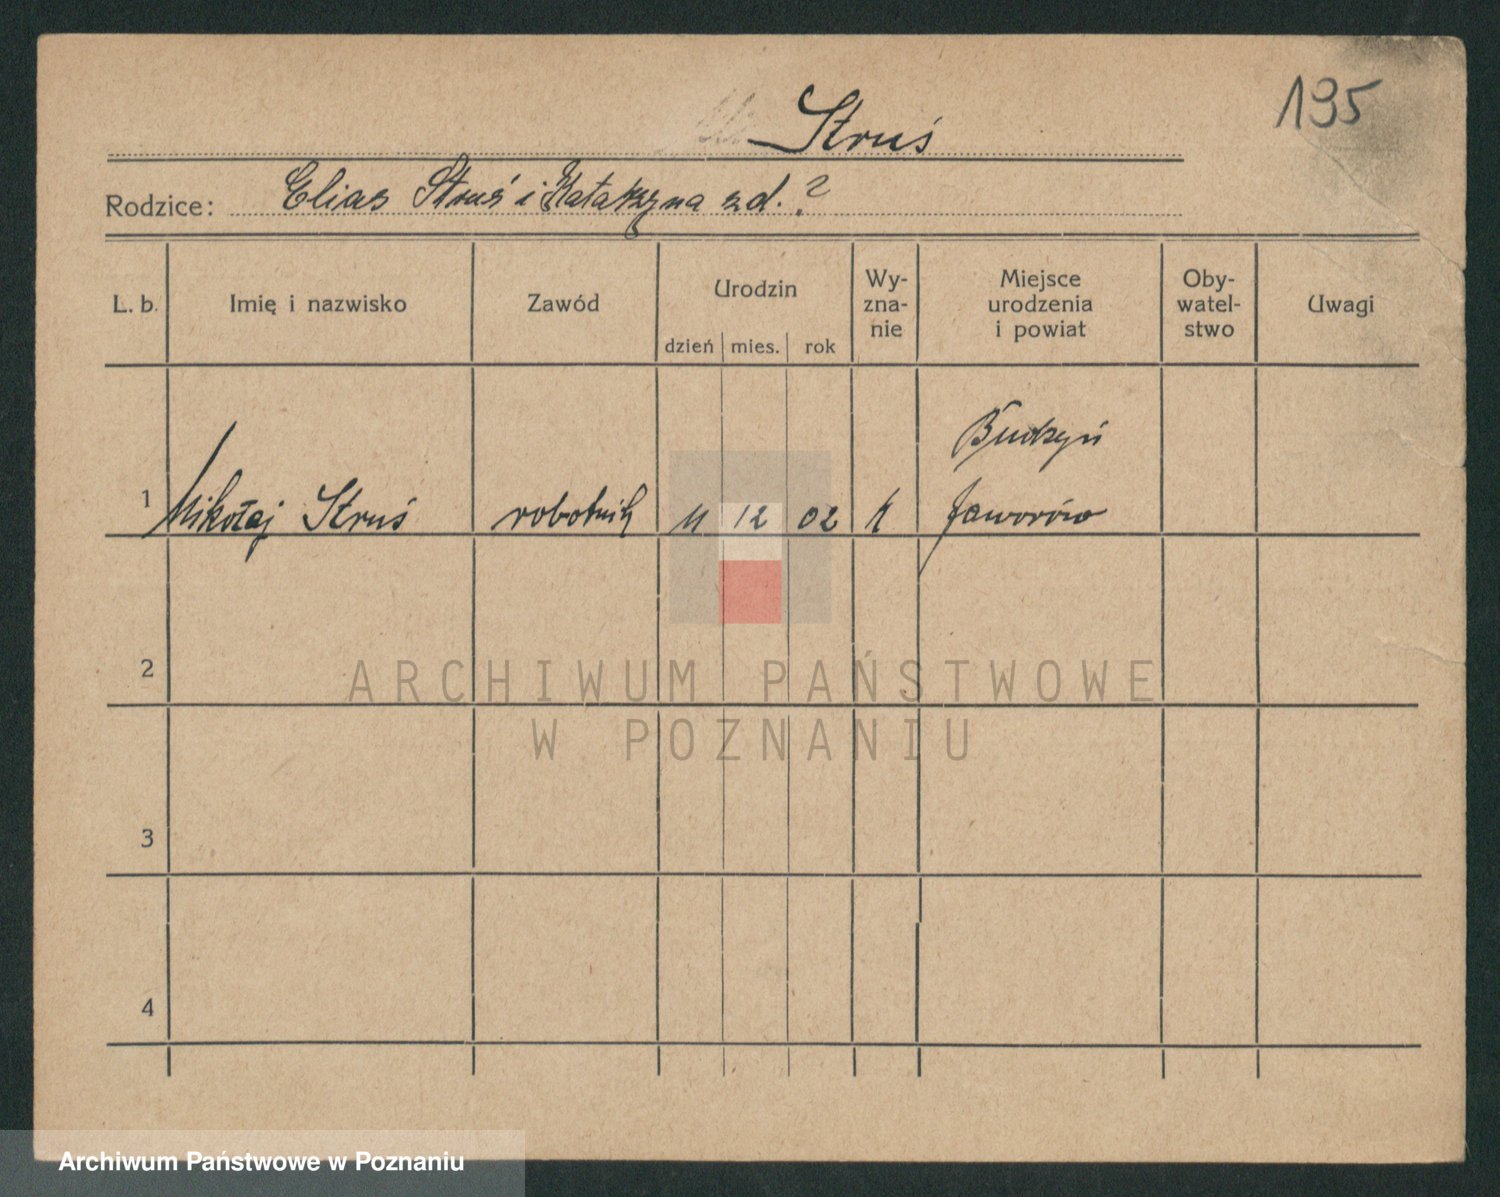 195
Struś
Rodzice: Elias Struś i Katarzyna zd. ?
L. b. Imię i nazwisko Zawód Urodzin dzień mies. rok Wy-zna-nie Miejsce urodzenia i powiat Oby-watel-stwo Uwagi
Budzyń
1 Mikołaj Struś robotnik 11 12 02 k Jaworów
2
ARCHIWUM PAŃSTWOWE
W POZNANIU
3
4
Archiwum Państwowe w Poznaniu